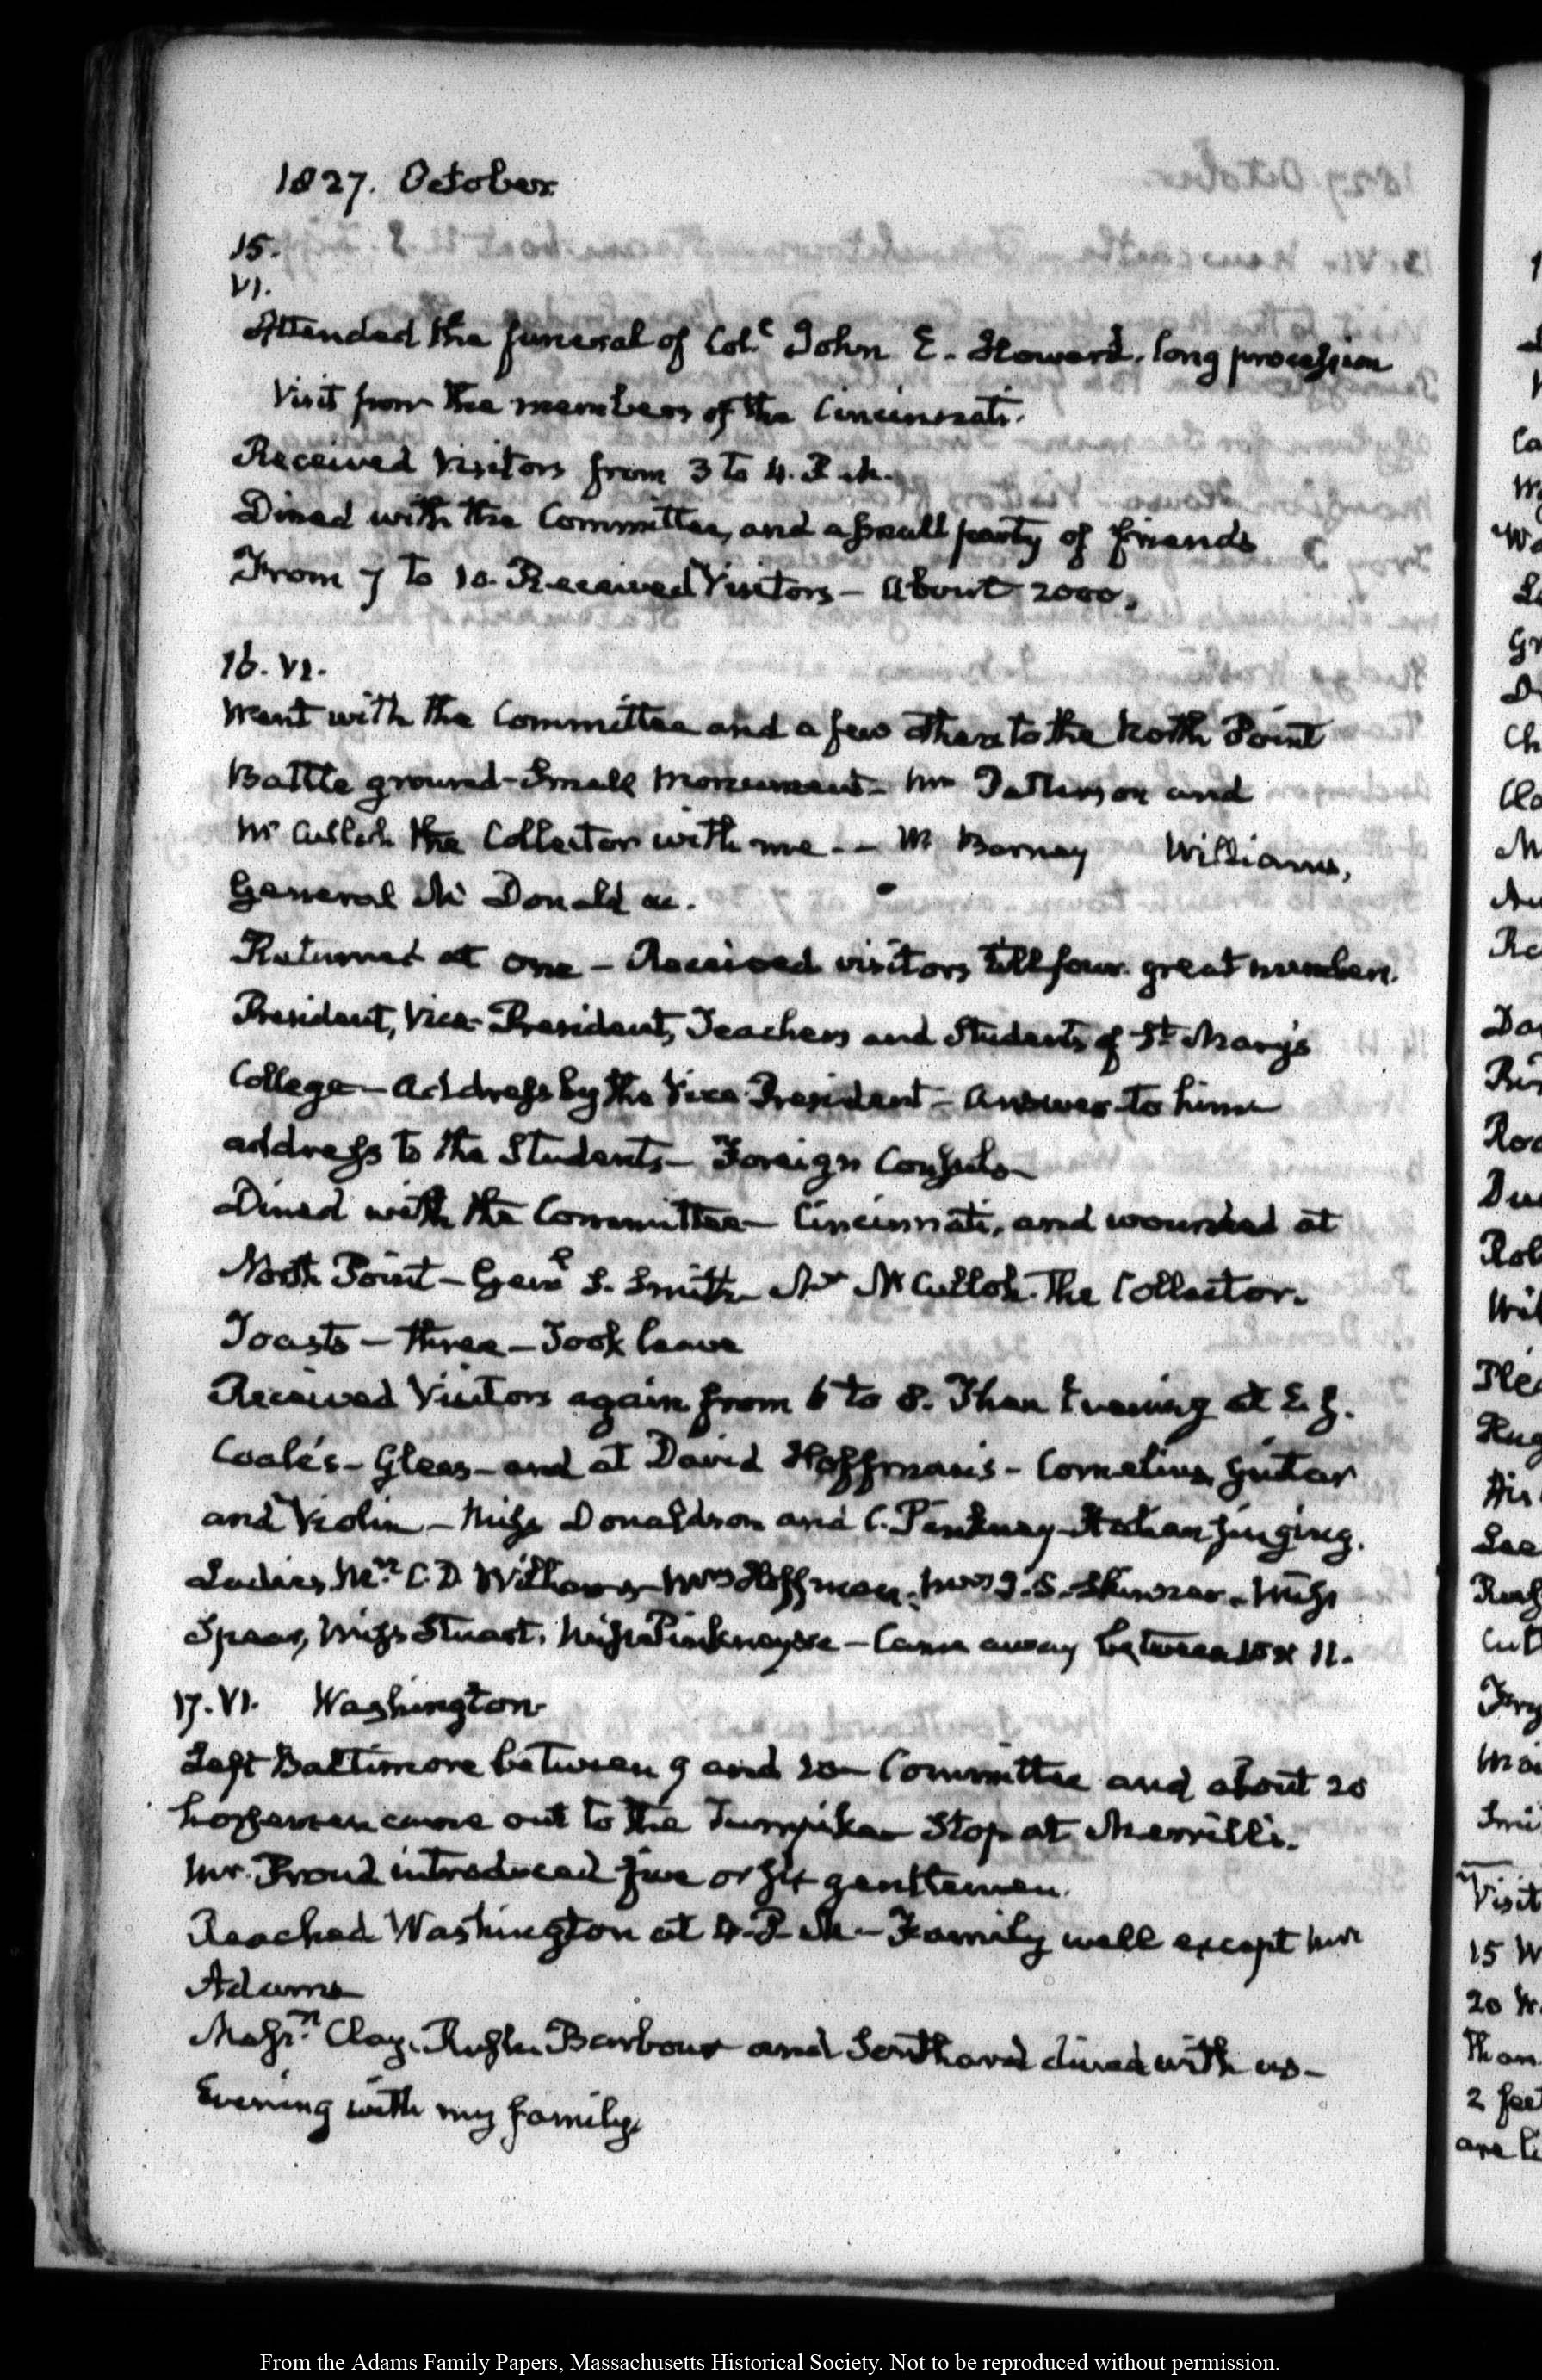 1827. October
15.
VI.
Attended the funeral of Coll. John E. Howard. long procession
Visit from the members of the Cincinnati.
Received Visitors from 3 to 4. P.M.
Dined with the Committee, and a small party of friends
From 7 to 10. Received Visitors – About 2000.
16. VI.
Went with the Committee and a few others to the North Point
Battle ground – Small Monument – Mr Patterson and
Mr Culloh the Collector with me – – Mr Barney Williams,
General Mc Donald &c.
Returned at one – Received visitors till four. great number.
President, Vice-President, Teachers and Students of St. Mary's
College – Address by the Vice President – Answer to him
address to the Students – Foreign Consuls –
Dined with the Committee – Cincinnati, and wounded at
North Point – Genl S. Smith Mr McCulloh. The Collector.
Toasts – three – Took leave
Received Visitors again from 6 to 8. Then Evening at E. J.
Coale's – Glees – and at David Hoffman's – Cornelius, guitar
and Violin – Miss Donaldson and C. Pinkney Italian singing.
Ladies, Mrs. C. D. Williams – Mrs Hoffman. Mrs J. S. Skinner. Miss
Spear, Miss Stuart, Miss Pinkney &c – Came away between 10 & 11.
17. VI. Washington
Left Baltimore between 9 and 10 – Committee and about 20
horsemen came out to the Turnpike – Stop at Merrill's.
Mr. Proud introduced five or six gentlemen.
Reached Washington at 4. P.M – Family well except Mrs
Adams
Messrs. Clay, Rush, Barbour and Southard dined with us –
Evening with my family.
Visit
15 W
20 W.
2 feet
From the Adams Family Papers, Massachusetts Historical Society. Not to be reproduced without permission.